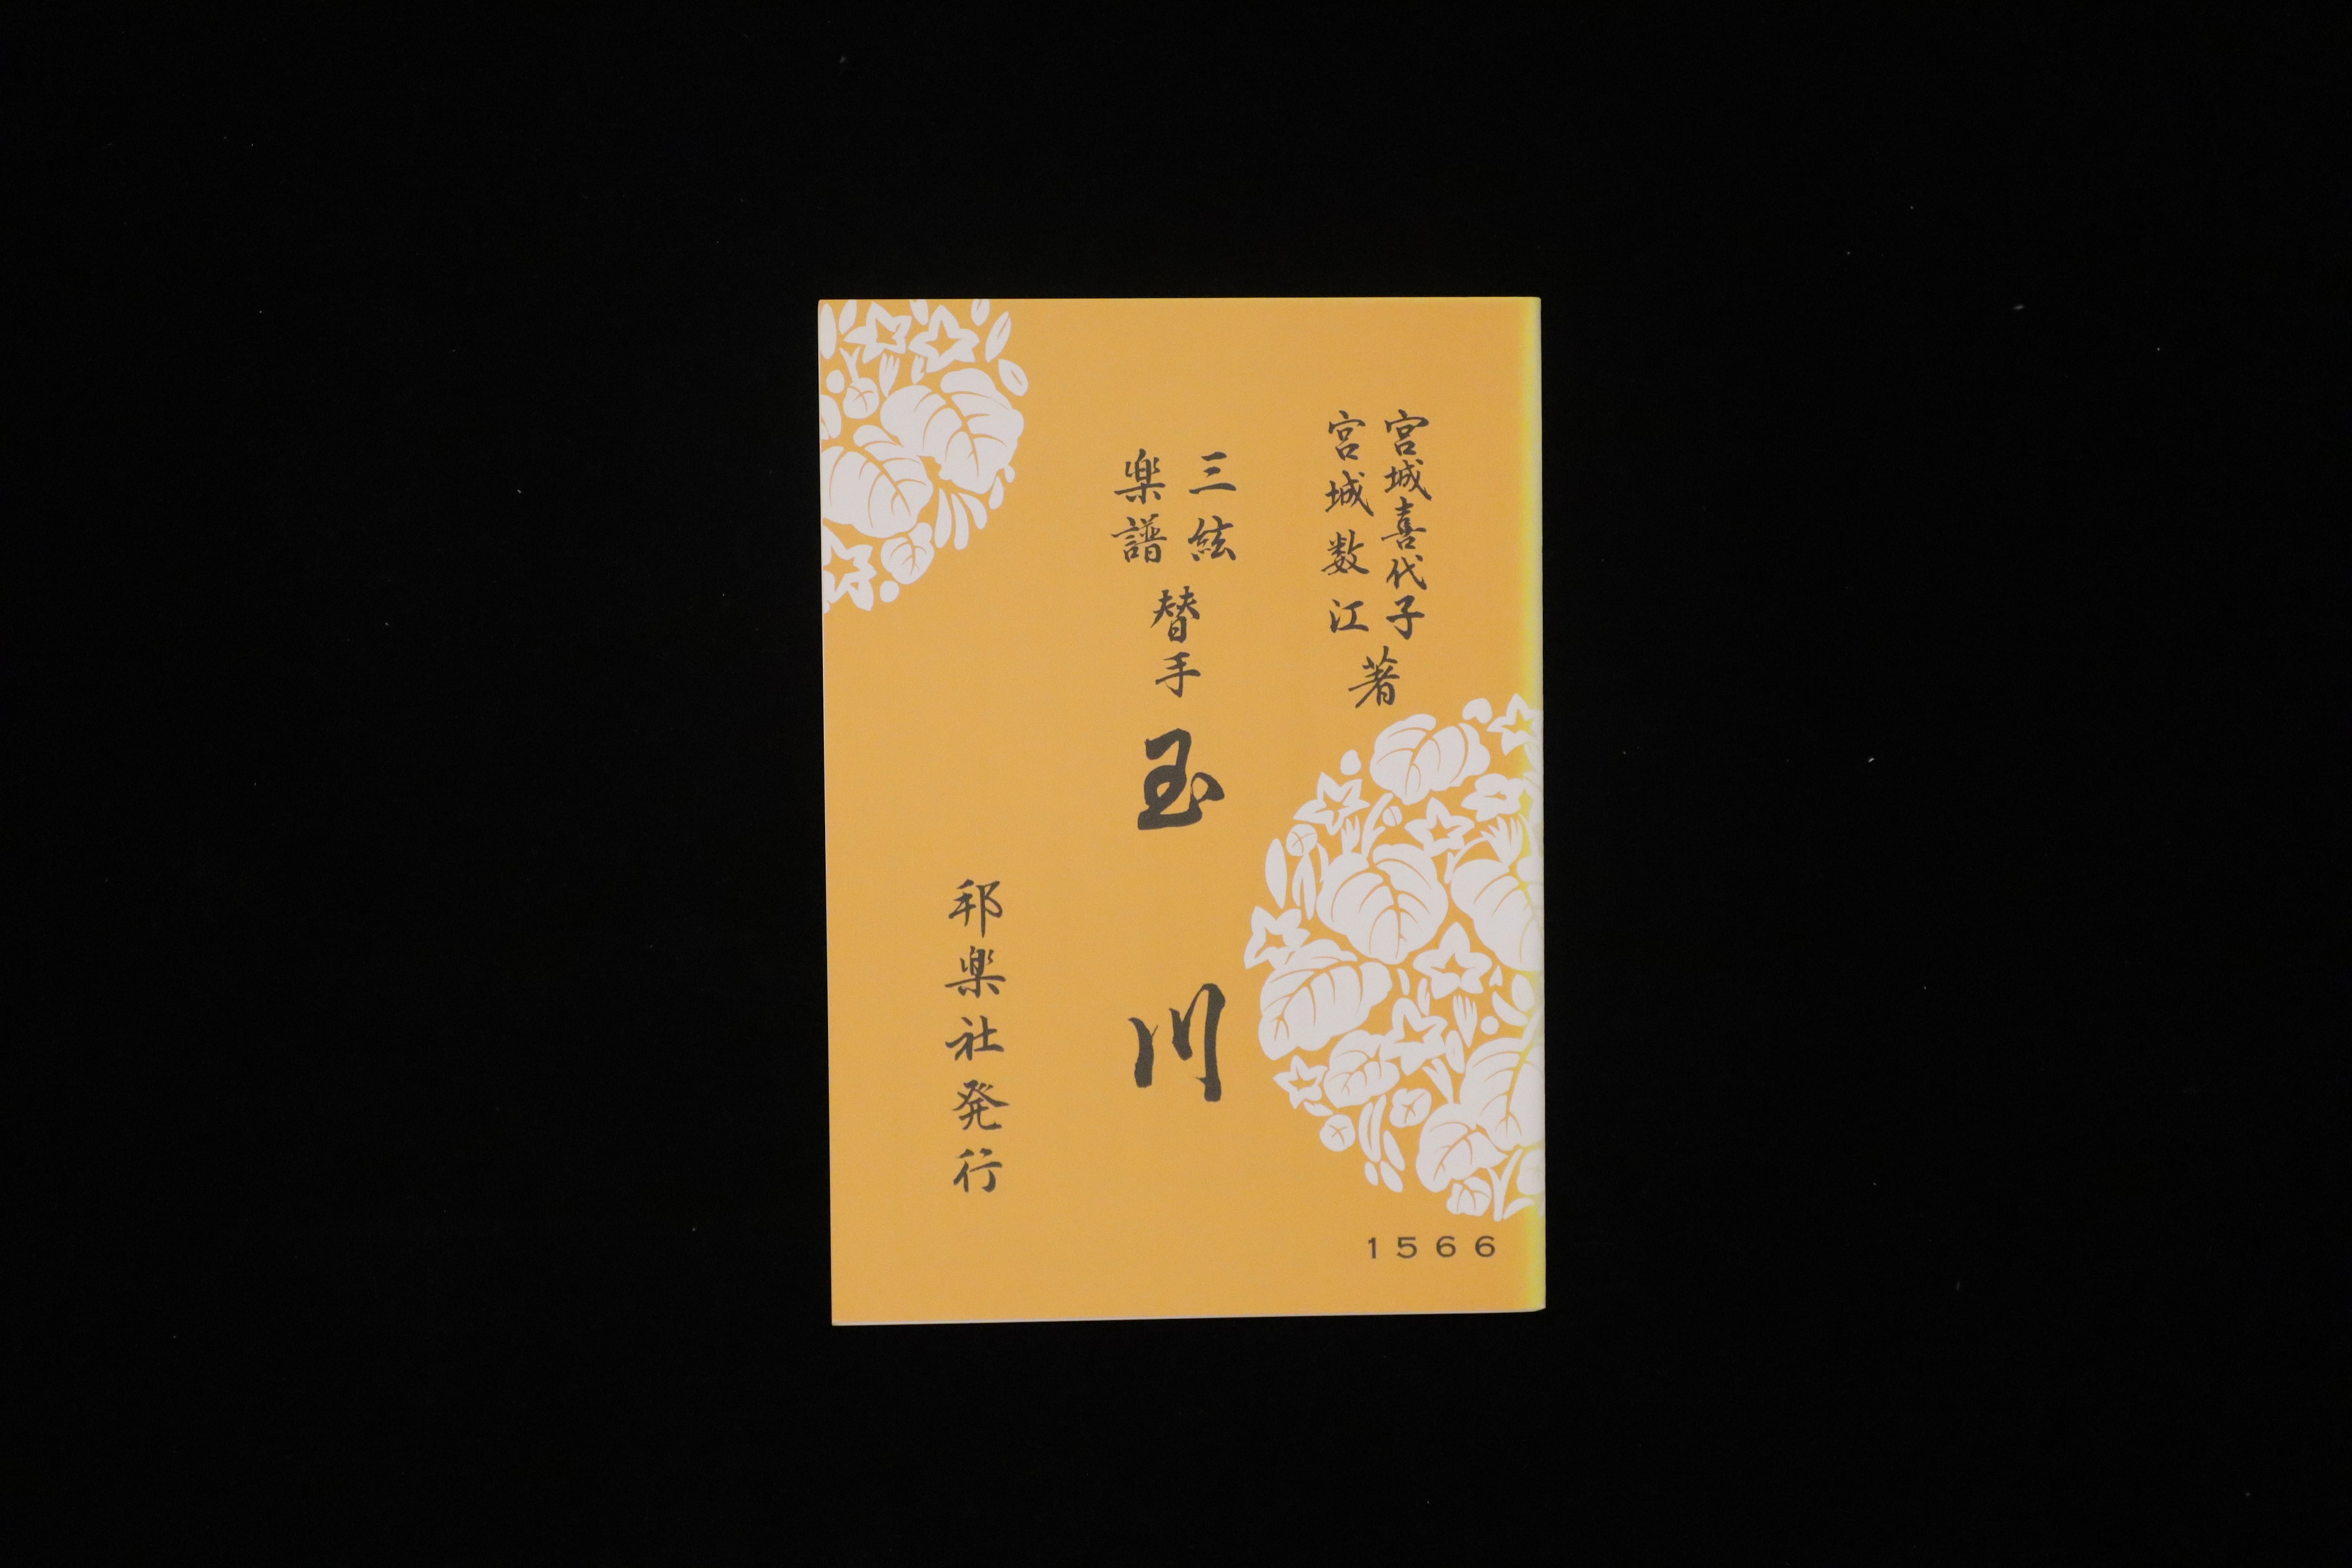 宮城喜代子
宮城数江
著
三絃
楽譜
替手
玉川
邦楽社発行
1566